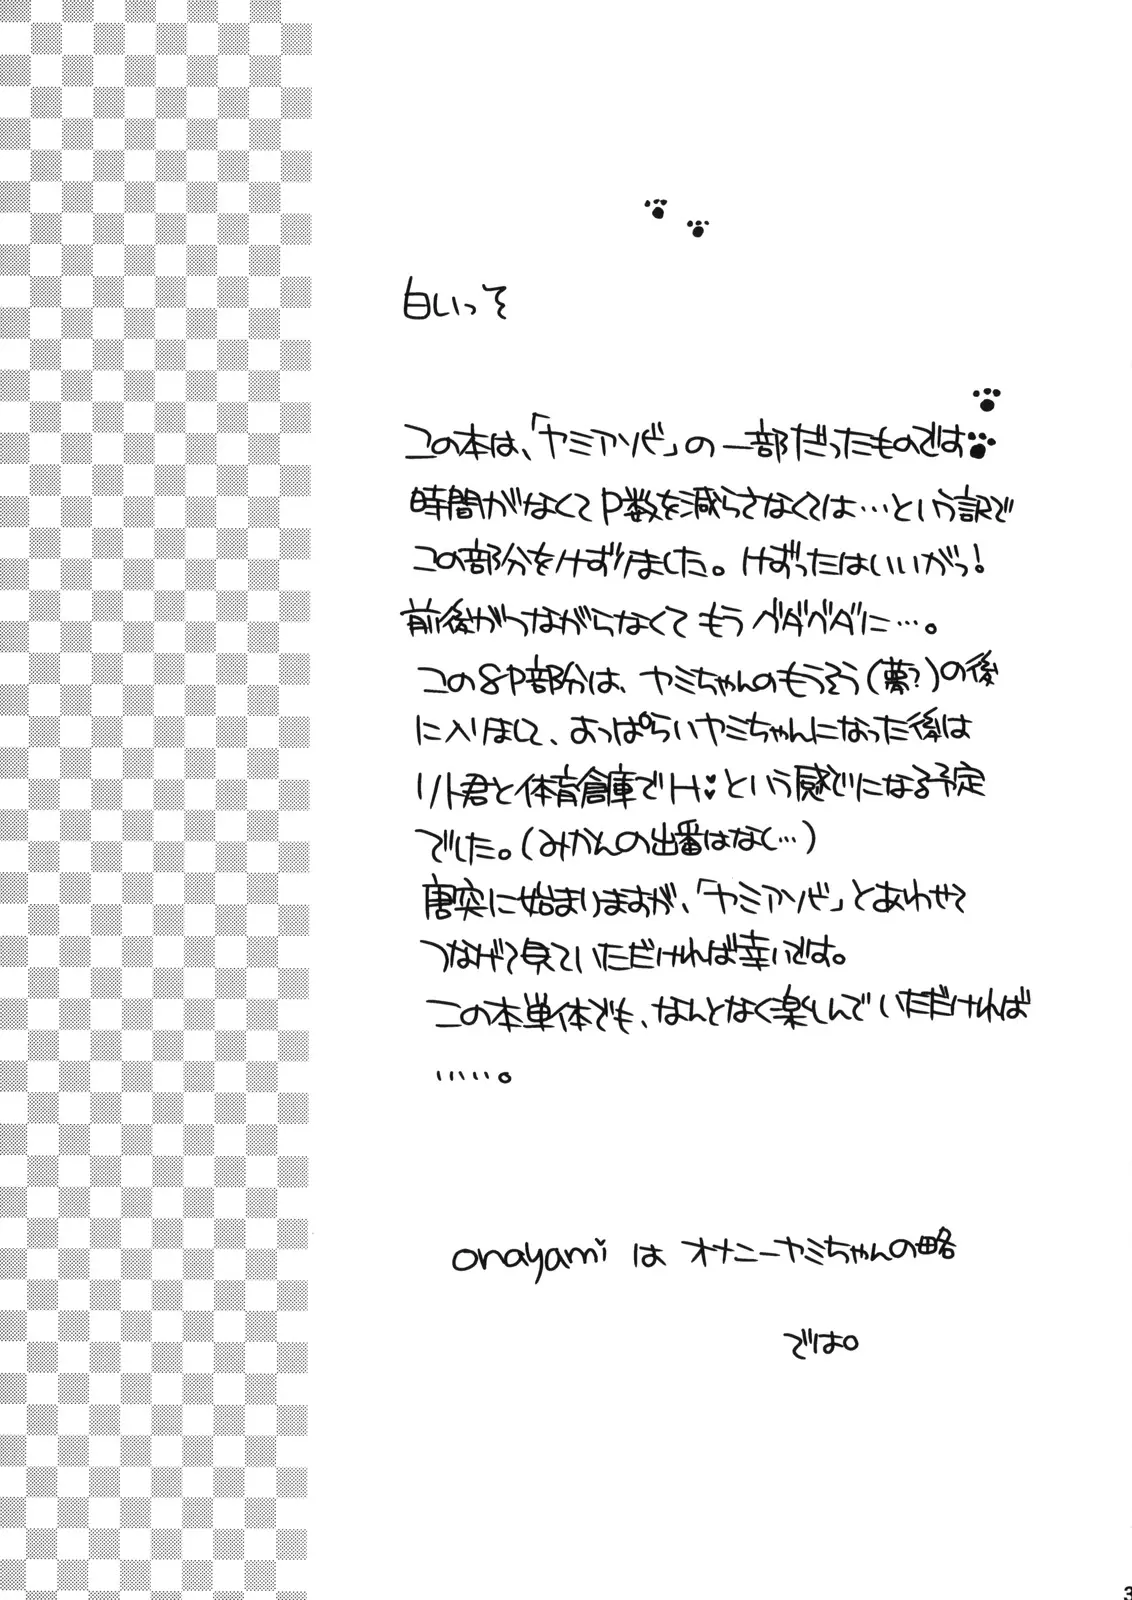 白いっそ
この本は、「ヤミアソビ」の一部だったものでは
時間がなくてP数を減らさなくては…という訳で
この部分をけずりました。けずったはいいがっ!
前後がつながらなくてもうグダグダに…。
この8P部分は、ヤミちゃんのもうそう(夢?)の後
に入りまして、よっぱらいヤミちゃんになった後は
リト君と体育倉庫でH♥という感じになる予定
でした。(みかんの出番はなし…)
唐突に始まりますが、「ヤミアソビ」とあわせて
つなげて見ていただければ幸いです。
この本単体でも、なんとなく楽しんでいただければ
……。
onayami は オナニーヤミちゃんの略
では。
3